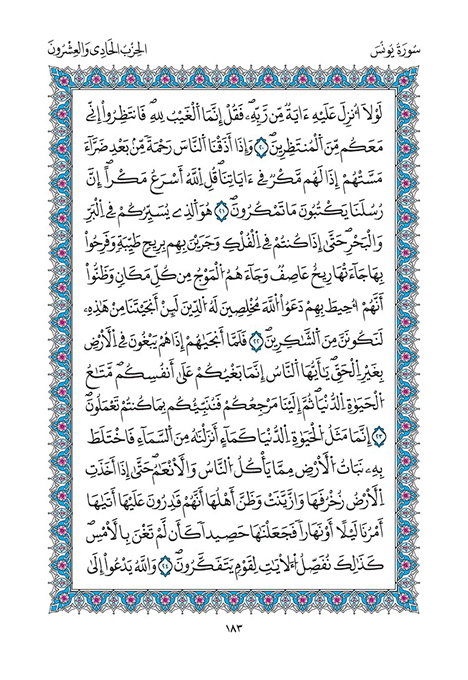 سُورَةُ يُونُسَ
الحِزْبُ الحَادِي وَالعِشْرُونَ
لَوْلَا أُنزِلَ عَلَيْهِ ءَايَةٌ مِّن رَّبِّهِۦ فَقُلْ إِنَّمَا اَ۬لْغَيْبُ لِلهِ فَانتَظِرُوٓاْ إِنِّے
مَعَكُم مِّنَ اَ۬لْمُنتَظِرِينَ ٢٠ وَإِذَآ أَذَقْنَا اَ۬لنَّاسَ رَحْمَةٗ مِّنۢ بَعْدِ ضَرَّآءَ
مَسَّتْهُمُۥٓ إِذَا لَهُم مَّكْرٞ فِےٓ ءَايَاتِنَا قُلِ اِ۬للَّهُ أَسْرَعُ مَكْراً اِنَّ
رُسُلَنَا يَكْتُبُونَ مَا تَمْكُرُونَ ٢١ هُوَ اَ۬لذِے يُسَيِّرُكُمْ فِے اِ۬لْبَرِّ
وَالْبَحْرِ حَتَّىٰٓ إِذَا كُنتُمْ فِے اِ۬لْفُلْكِ وَجَرَيْنَ بِهِم بِرِيحٖ طَيِّبَةٖ وَفَرِحُواْ
بِهَا جَآءَتْهَا رِيحٌ عَاصِفٞ وَجَآءَهُمُ اُ۬لْمَوْجُ مِن كُلِّ مَكَانٖ وَظَنُّوٓاْ
أَنَّهُمُۥٓ أُحِيطَ بِهِمْ دَعَوُاْ اُ۬للَّهَ مُخْلِصِينَ لَهُ اُ۬لدِّينَ لَئِنَ اَنجَيْتَنَا مِنْ هَٰذِهِۦ
لَنَكُونَنَّ مِنَ اَ۬لشَّٰكِرِينَ ٢٢ فَلَمَّآ أَنجَىٰهُمُۥٓ إِذَا هُمْ يَبْغُونَ فِے اِ۬لْأَرْضِ
بِغَيْرِ اِ۬لْحَقِّ يَٰٓأَيُّهَا اَ۬لنَّاسُ إِنَّمَا بَغْيُكُمْ عَلَىٰٓ أَنفُسِكُم مَّتَٰعُ
اُ۬لْحَيَوٰةِ اِ۬لدُّنْيَا ثُمَّ إِلَيْنَا مَرْجِعُكُمْ فَنُنَبِّئُكُم بِمَا كُنتُمْ تَعْمَلُونَ
٢٣ إِنَّمَا مَثَلُ اُ۬لْحَيَوٰةِ اِ۬لدُّنْيَا كَمَآءٍ اَنزَلْنَٰهُ مِنَ اَ۬لسَّمَآءِ فَاخْتَلَطَ
بِهِۦ نَبَاتُ اُ۬لْأَرْضِ مِمَّا يَأْكُلُ اُ۬لنَّاسُ وَالْأَنْعَٰمُ حَتَّىٰٓ إِذَآ أَخَذَتِ
اِ۬لْأَرْضُ زُخْرُفَهَا وَازَّيَّنَتْ وَظَنَّ أَهْلُهَآ أَنَّهُمْ قَٰدِرُونَ عَلَيْهَآ أَتَىٰهَآ
أَمْرُنَا لَيْلاً اَوْ نَهَاراٗ فَجَعَلْنَٰهَا حَصِيداٗ كَأَن لَّمْ تَغْنَ بِالْأَمْسِ
كَذَٰلِكَ نُفَصِّلُ اُ۬لْأٓيَٰتِ لِقَوْمٖ يَتَفَكَّرُونَ ٢٤ وَاللَّهُ يَدْعُوٓاْ إِلَىٰ
١٨٣